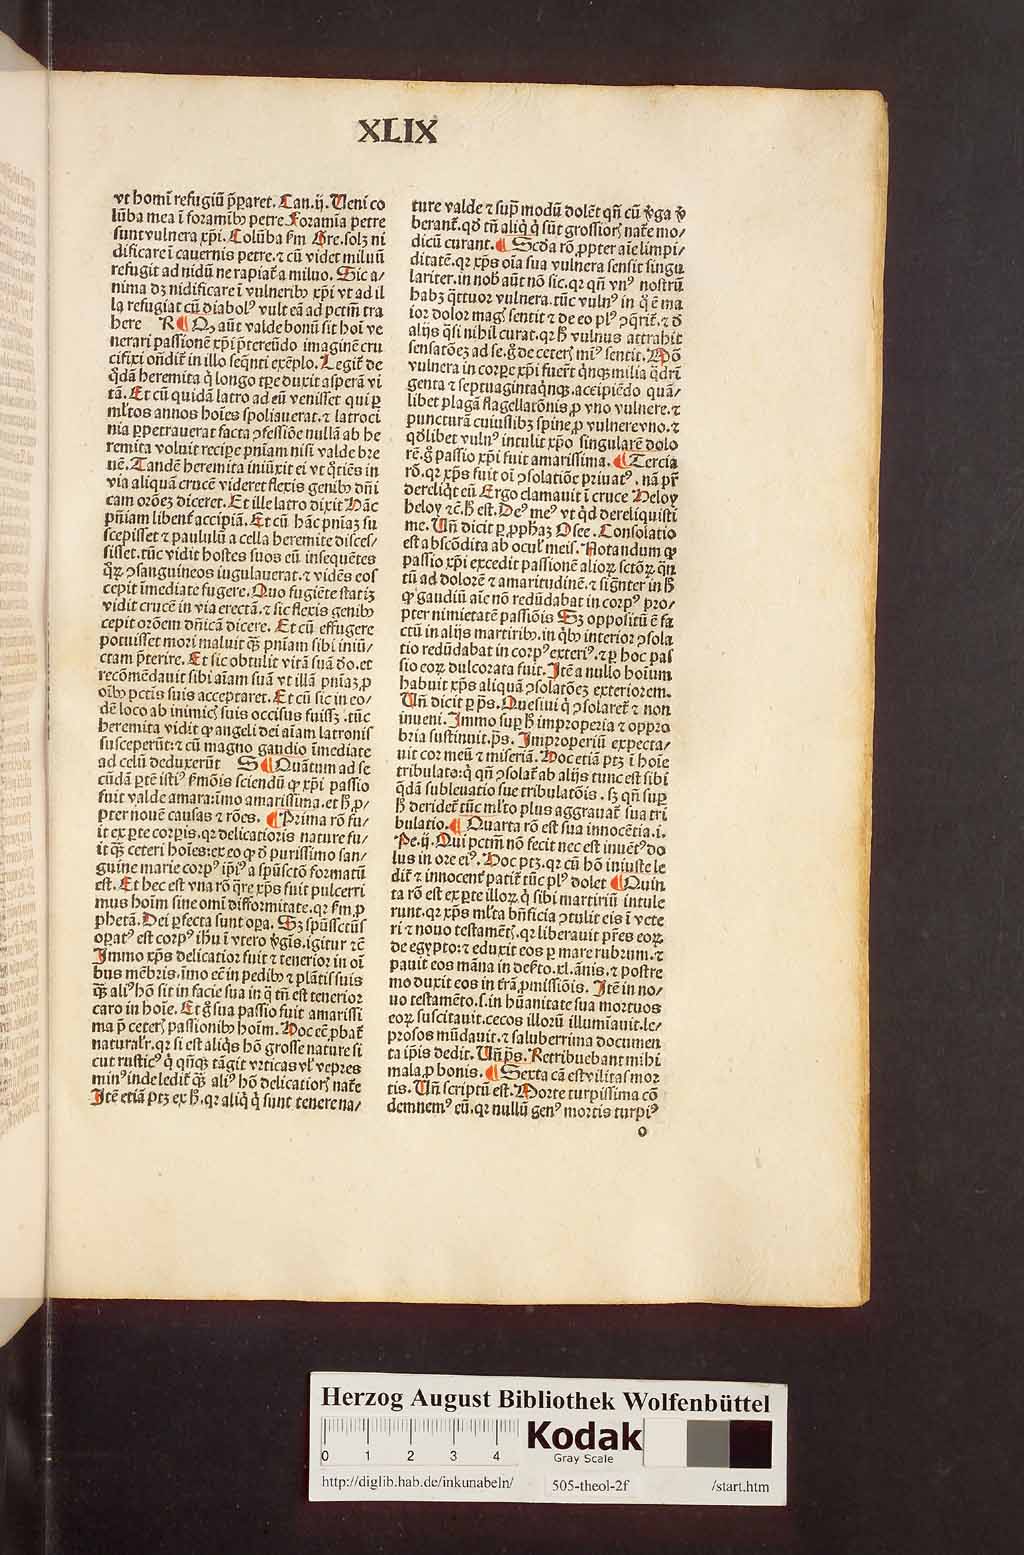 XLIX
vt homī refugiū p̄paret. Can.ij. Veni co
lūba mea ī foramībꝰ petre Foramīa petre
sunt vulnera xp̄i. Colūba ẜm Gre.solꝫ ni
dificare ī cauernis petre.⁊ cū videt miluū
refugit ad nidū ne rapiat᷑ a miluo. Sic a/
nima dꝫ nidificare ī vulneribꝰ xp̄i vt ad il
la refugiat cū diabolꝰ vult eā ad pctm̄ tra
here R ¶ Qꝫ aūt valde bonū sit hoī ve
nerari passionē xp̄i p̄tereūdo imaginē cru
cifixi on̄dit᷑ in illo seq̄nti exēplo. Legit᷑ de
q̄dā heremita q̇ longo tꝑe duxit asperā vi
tā. Et cū quidā latro ad eū venisset qui ꝑ
ml̓tos annos hoīes spoliauerat.⁊ latroci
nia ꝑpetrauerat facta ꝯfessiōe nullā ab he
remita voluit recipe pn̄iam nisi valde bre
uē. Tandē heremita iniūxit ei vt q̊tiēs in
via aliquā crucē videret flexis genibꝰ dn̄i
cam orōeꝫ diceret. Et ille latro dixit Hāc
pn̄iam libent᷑ accipiā. Et cū hāc pn̄iaꝫ su
scepisset ⁊ paululū a cella heremite disces/
sisset.tūc vidit hostes suos eū insequētes
q̊ꝝ ꝯsanguineos iugulauerat.⁊ vidēs eos
cepit īmediate fugere. Quo fugiēte statiꝫ
vidit crucē in via erectā.⁊ sic flexis genibꝰ
cepit orōem dn̄icā dicere. Et cū effugere
potuisset mori maluit q̄ꝫ pn̄iam sibi iniū/
ctam p̄terire. Et sic obtulit vitā suā dō.et
recōmēdauit sibi aīam suā vt illā pn̄iaꝫ ꝓ
oībꝰ pctis suis acceptaret. Et cū sic in eo/
dē loco ab inimicꝭ suis occisus fuissꝫ.tūc
heremita vidit ꝙ angeli dei aīam latronis
susceperūt:⁊ cū magno gaudio īmediate
ad celū deduxerūt S ¶ Quātum ad se
cūdā ꝑtē istiꝰ ẜmōis sciendū ꝙ xp̄i passio
fuit valde amara:īmo amarissīma.et h̄ ꝓ/
pter nouē causas ⁊ rōes. ¶ Prima rō fu/
it ex ꝑte corꝑis.qꝛ delicatioris nature fu/
it q̄ꝫ ceteri hoīes:ex eo ꝙ d̄ purissimo san/
guine marie corpꝰ ip̄iꝰ a sp̄ūsctō formatū
est. Et hec est vna rō q̄re xp̄s fuit pulcerri
mus hoīm sine omī difformitate.qꝛ ẜm ꝓ
phetā. Dei ꝑfecta sunt oꝑa. Sꝫ sp̄ūssctūs
oꝑatꝰ est corpꝰ ih̄u ī vtero v̓gīs.igitur ⁊c̄
Immo xp̄s delicatior fuit ⁊ tenerior in oī
bus mēbris.īmo eē in pedibꝰ ⁊ plātis suis
q̄ꝫ aliꝰ hō sit in facie sua in q̄ tn̄ est tenerior
caro in hoīe. Et g̊ sua passio fuit amarissi
ma p̄ ceterꝭ passionibꝰ hoīm. Hoc eē ꝓbat᷑
natural̓r.qꝛ si est aliq̇s hō grosse nature si
cut rusticꝰ q̇ qn̄qꝫ tāgit vrticas vl̓ vepres
minꝰ inde ledit᷑ q̄ꝫ aliꝰ hō delicatiorꝭ nat᷑e
Itē etiā ptꝫ ex h̄.qꝛ aliq̇ q̇ sunt tenere na/
ture valde ⁊ sup̄ modū dolēt qn̄ cū v̓ga v̓
berant᷑.qd̓ tn̄ aliq̇ q̇ sūt grossiorꝭ nat᷑e mo/
dicū curant. ¶ Scd̓a rō ꝓpter aīe limpi/
ditatē.qꝛ xp̄s oīa sua vulnera sensit singu
lariter.in nob̄ aūt nō sic.qꝛ qn̄ vnꝰ nostrū
habꝫ q̄ttuor vulnera.tūc vulnꝰ in q̊ ē ma
ior dolor magꝭ sentit ⁊ de eo plꝰ ꝯq̄rit᷑.⁊ d̓
alijs q̄si nihil curat.qꝛ h̄ vulnus attrahit
sensatōeꝫ ad se.g̊ de ceterꝭ minꝰ sentit. Mō
vulnera in corꝑe xp̄i fuer̄t q̇nqꝫ milia q̄drī
genta ⁊ septuagintaq̇nqꝫ.accipiēdo quā/
libet plagā flagellatōnis ꝓ vno vulnere.⁊
puncturā cuiuslibꝫ spine ꝓ vulnere vno.⁊
qd̓libet vulnꝰ intulit xp̄o singularē dolo
rē.g̊ passio xp̄i fuit amarissima. ¶ Tercia
rō.qꝛ xp̄s fuit oī ꝯsolatiōe priuatꝰ. nā pr̄
dereliq̇t eū Ergo clamauit ī cruce Heloy
heloy ⁊c̄.h̄ est. Deꝰ meꝰ vt q̇d dereliquisti
me. Vn̄ dicit᷑ ꝑ ꝓphaꝫ Osee. Consolatio
est abscōdita ab ocul̓ meis. Notandum ꝙ
passio xp̄i excedit passionē alioꝝ sctōꝝ q̄n
tū ad dolorē ⁊ amaritudinē.⁊ sign̄ter in h̄
ꝙ gaudiū aīe nō redūdabat in corpꝰ pro/
pter nimietatē passiōis Sꝫ oppositū ē fa
ctū in alijs martiribꝰ.in q̇bꝰ interior ꝯsola
tio redūdabat in corpꝰ exteriꝰ.⁊ ꝑ hoc pas
sio eoꝝ dulcorata fuit. Itē a nullo hoīum
habuit xp̄s aliquā ꝯsolatōeꝫ exteriorem.
Vn̄ dicit ꝑ p̄s. Quesiui q̇ ꝯsolaret᷑ ⁊ non
inueni. Immo suꝑ h̄ improperia ⁊ oppro
bria sustinuit.p̄s. Improperiū expecta/
uit cor meū ⁊ miseriā. Hoc etiā ptꝫ ī hoīe
tribulato:q̇ qn̄ ꝯsolat᷑ ab alijs tunc est sibi
q̄dā subleuatio sue tribulatōis. sꝫ qn̄ suꝑ
h̄ deridet᷑ tūc ml̓to plus aggrauat᷑ sua tri
bulatio. ¶ Quarta rō est sua innocētia.i.
Pe.ij. Qui pctm̄ nō fecit nec est inuētꝰ do
lus in ore eiꝰ. Hoc ptꝫ.qꝛ cū hō iniuste le
dit᷑ ⁊ innocent᷑ patit᷑ tūc plꝰ dolet ¶ Quin
ta rō est ex ꝑte illoꝝ q̇ sibi martiriū intule
runt.qꝛ xp̄s ml̓ta bn̄ficia ꝯtulit eis ī vete
ri ⁊ nouo testamētꝭ.qꝛ liberauit pr̄es eoꝝ
de egypto:⁊ eduxit eos ꝑ mare rubrum.⁊
pauit eos māna in deẜto.xl.ānis.⁊ postre
mo duxit eos in trā ꝓmissiōis. Itē in no/
uo testamēto.s.in hūanitate sua mortuos
eoꝝ suscitauit.cecos illorū illumīauit.le/
prosos mūdauit.⁊ saluberrima documen
ta ip̄is dedit. Vn̄ p̄s. Retribuebant mihi
mala ꝓ bonis. ¶ Sexta cā est vilitas mor
tis. Vn̄ scriptū est. Morte turpissima cō
demnemꝰ eū.qꝛ nullū genꝰ mortis turpiꝰ
o
Herzog August Bibliothek Wolfenbüttel
0 1 2 3 4
Kodak
Gray Scale
http://diglib.hab.de/inkunabeln/ 505-theol-2f /start.htm